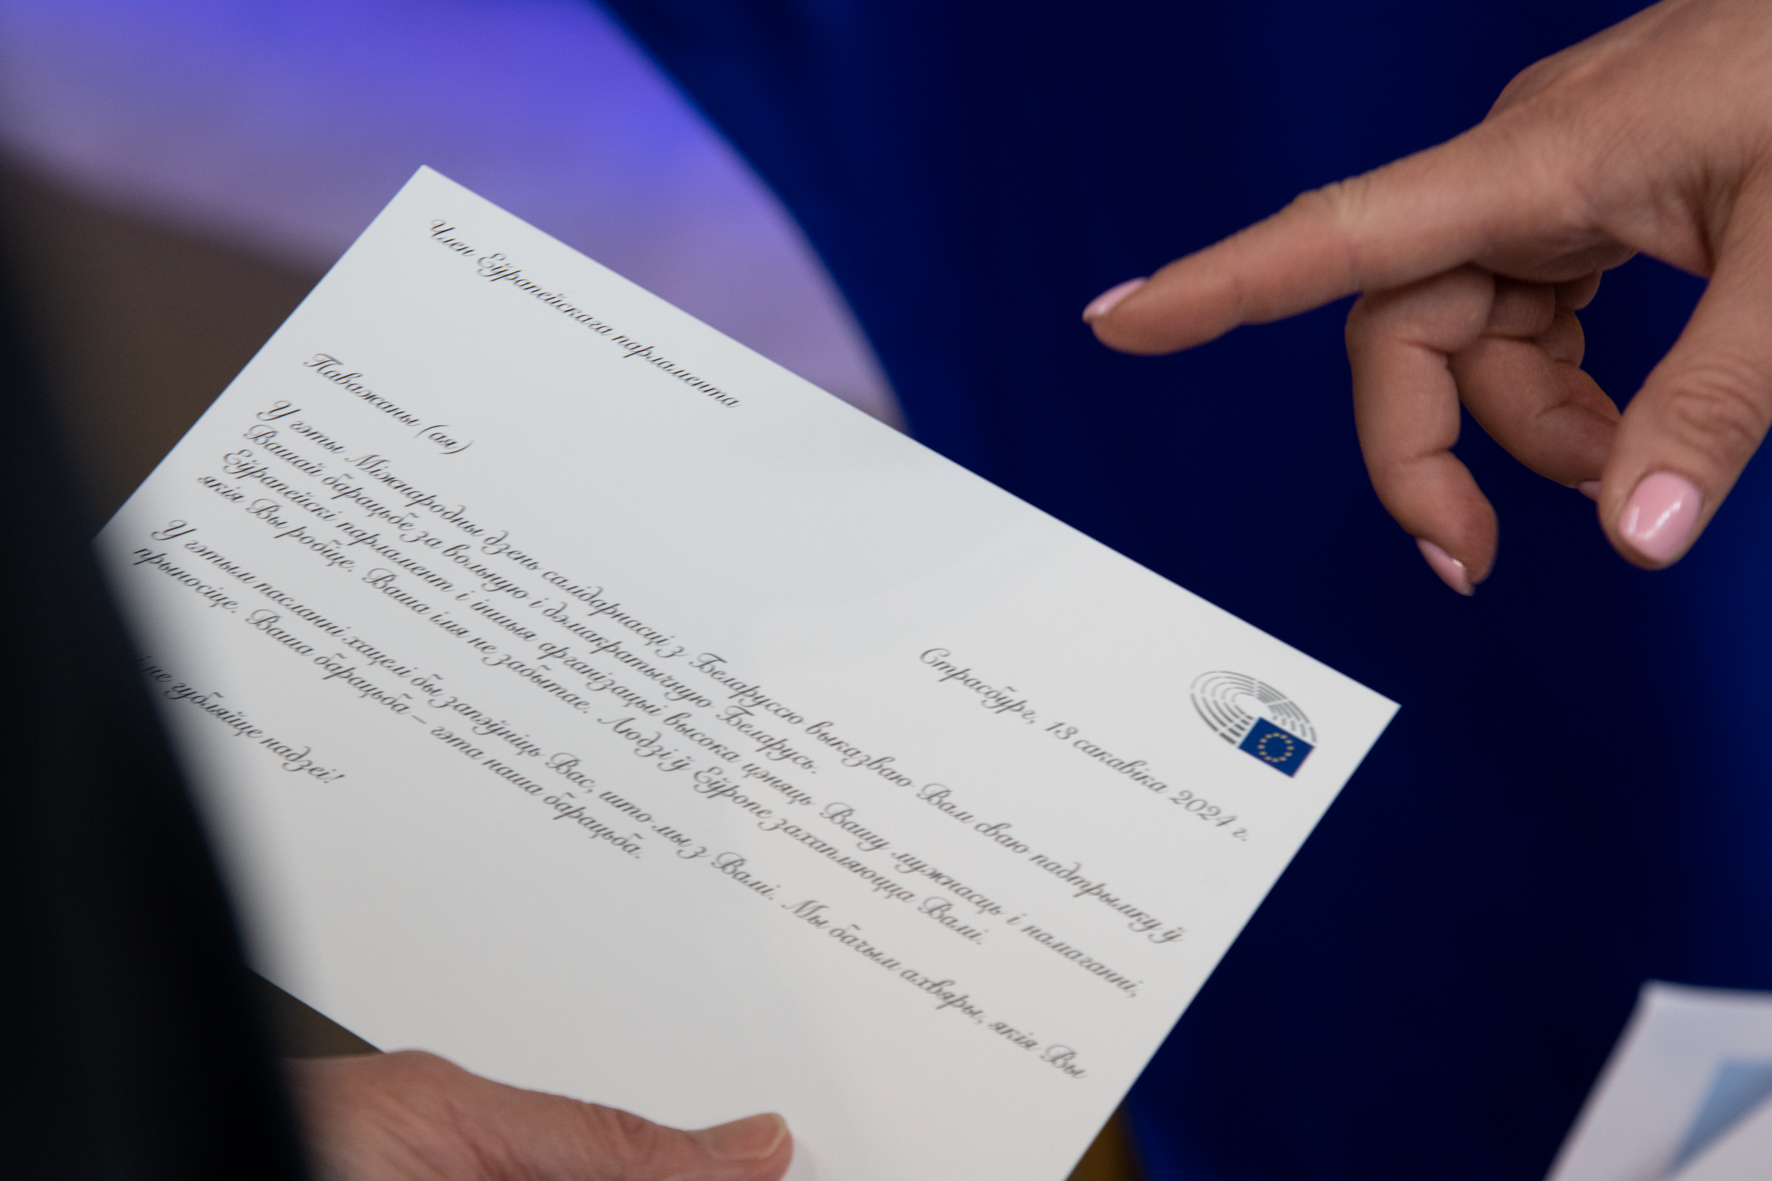 Член Еўрапейскага парламента
Страсбург, 13 сакавіка 2024 г.
Паважаны (ая)
У гэты Міжнародны дзень салідарнасці з Беларуссю выказваю Вам сваю падтрымку ў
Вашай барацьбе за вольную і дэмакратычную Беларусь.
Еўрапейскі парламент і іншыя арганізацыі высока цэняць Вашу мужнасць і намаганні,
якія Вы робіце. Ваша імя не забыта. Людзі ў Еўропе захапляюцца Вамі.
У гэтым пасланні хацелі бы запэўніць Вас, што мы з Вамі. Мы бачым ахвяры, якія Вы
прыносіце. Ваша барацьба – гэта наша барацьба.
не губляйце надзеі!